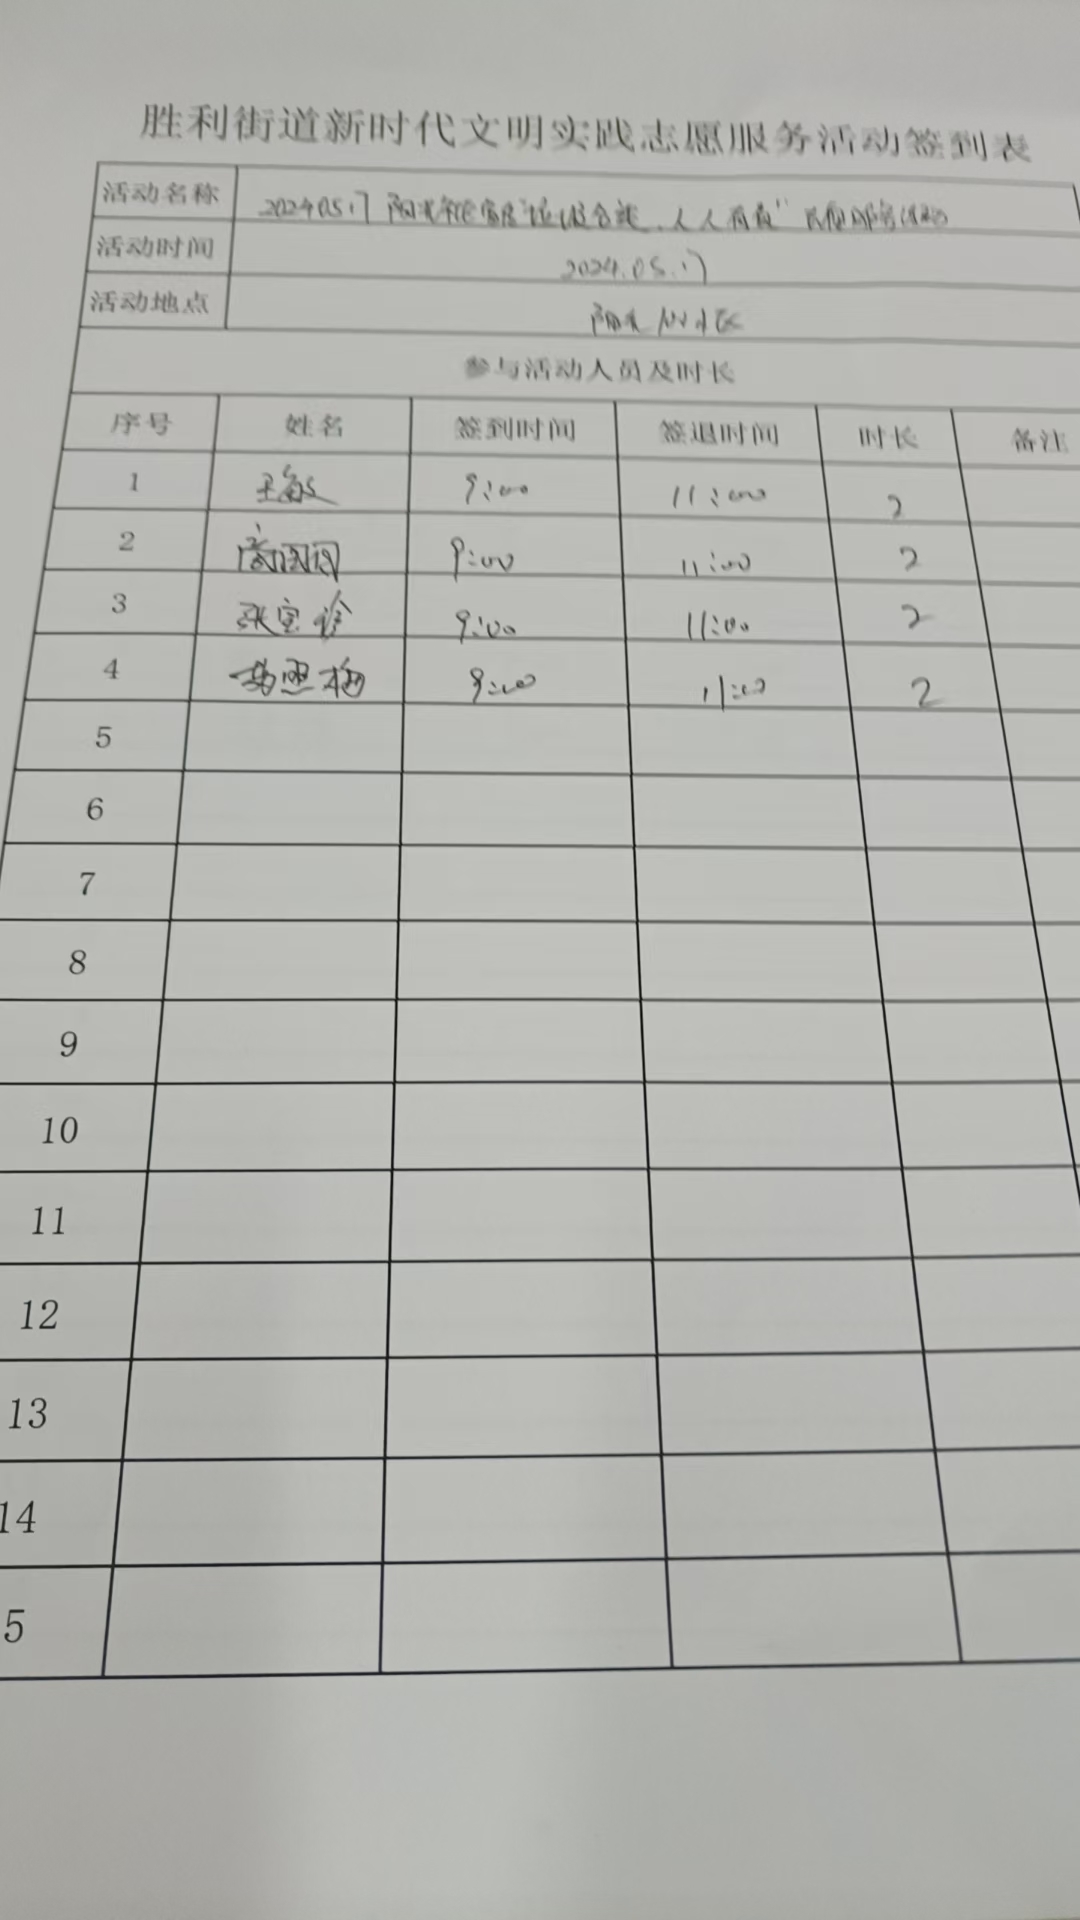 胜利街道新时代文明实践志愿服务活动签到表
活动名称 20240517 阳光 人人有责" 志愿服务活动
活动时间 2024.05.17
活动地点 阳光 小区
参与活动人员及时长
序号 姓名 签到时间 签退时间 时长 备注
1 王敏 9:00 11:00 2
2 9:00 11:00 2
3 张宝珍 9:00 11:00 2
4 杨照梅 9:00 11:00 2
5
6
7
8
9
10
11
12
13
14
5